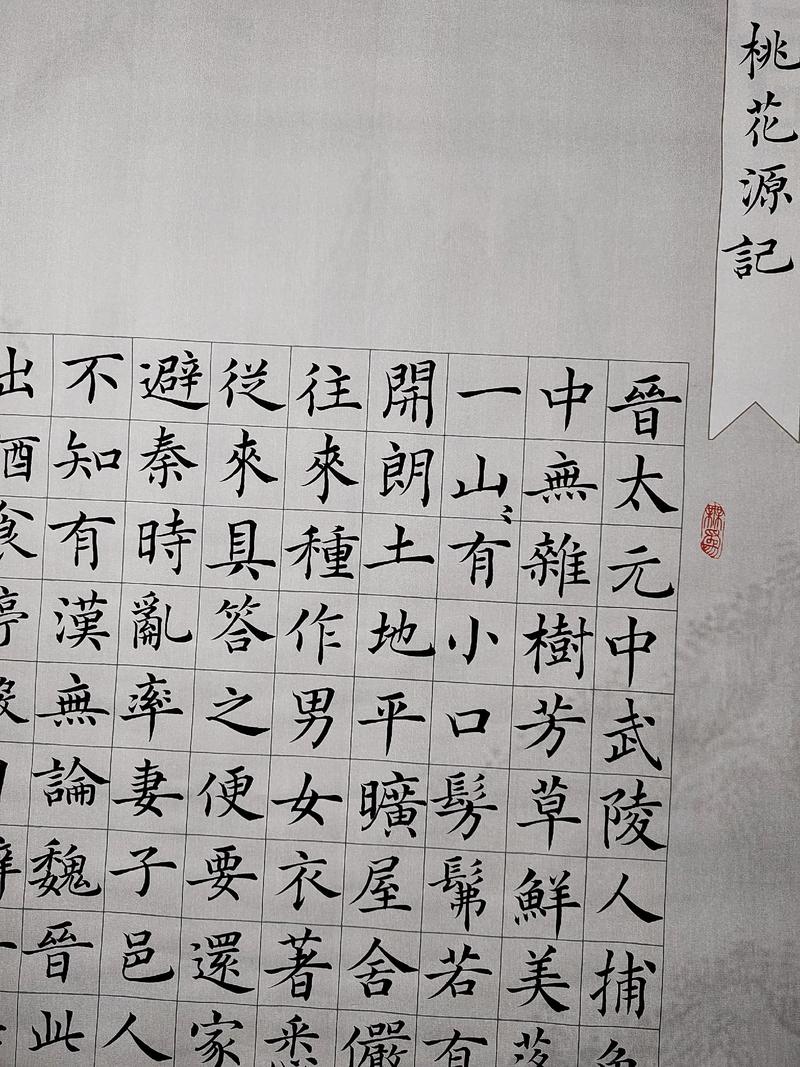 桃花源記
晉太元中武陵人捕
中無雜樹芳草鮮美落
一山〻有小口髣髴若有
開朗土地平曠屋舍儼
往來種作男女衣著悉
從來具答之便要還家
避秦時亂率妻子邑人
不知有漢無論魏晉此
出酒食停